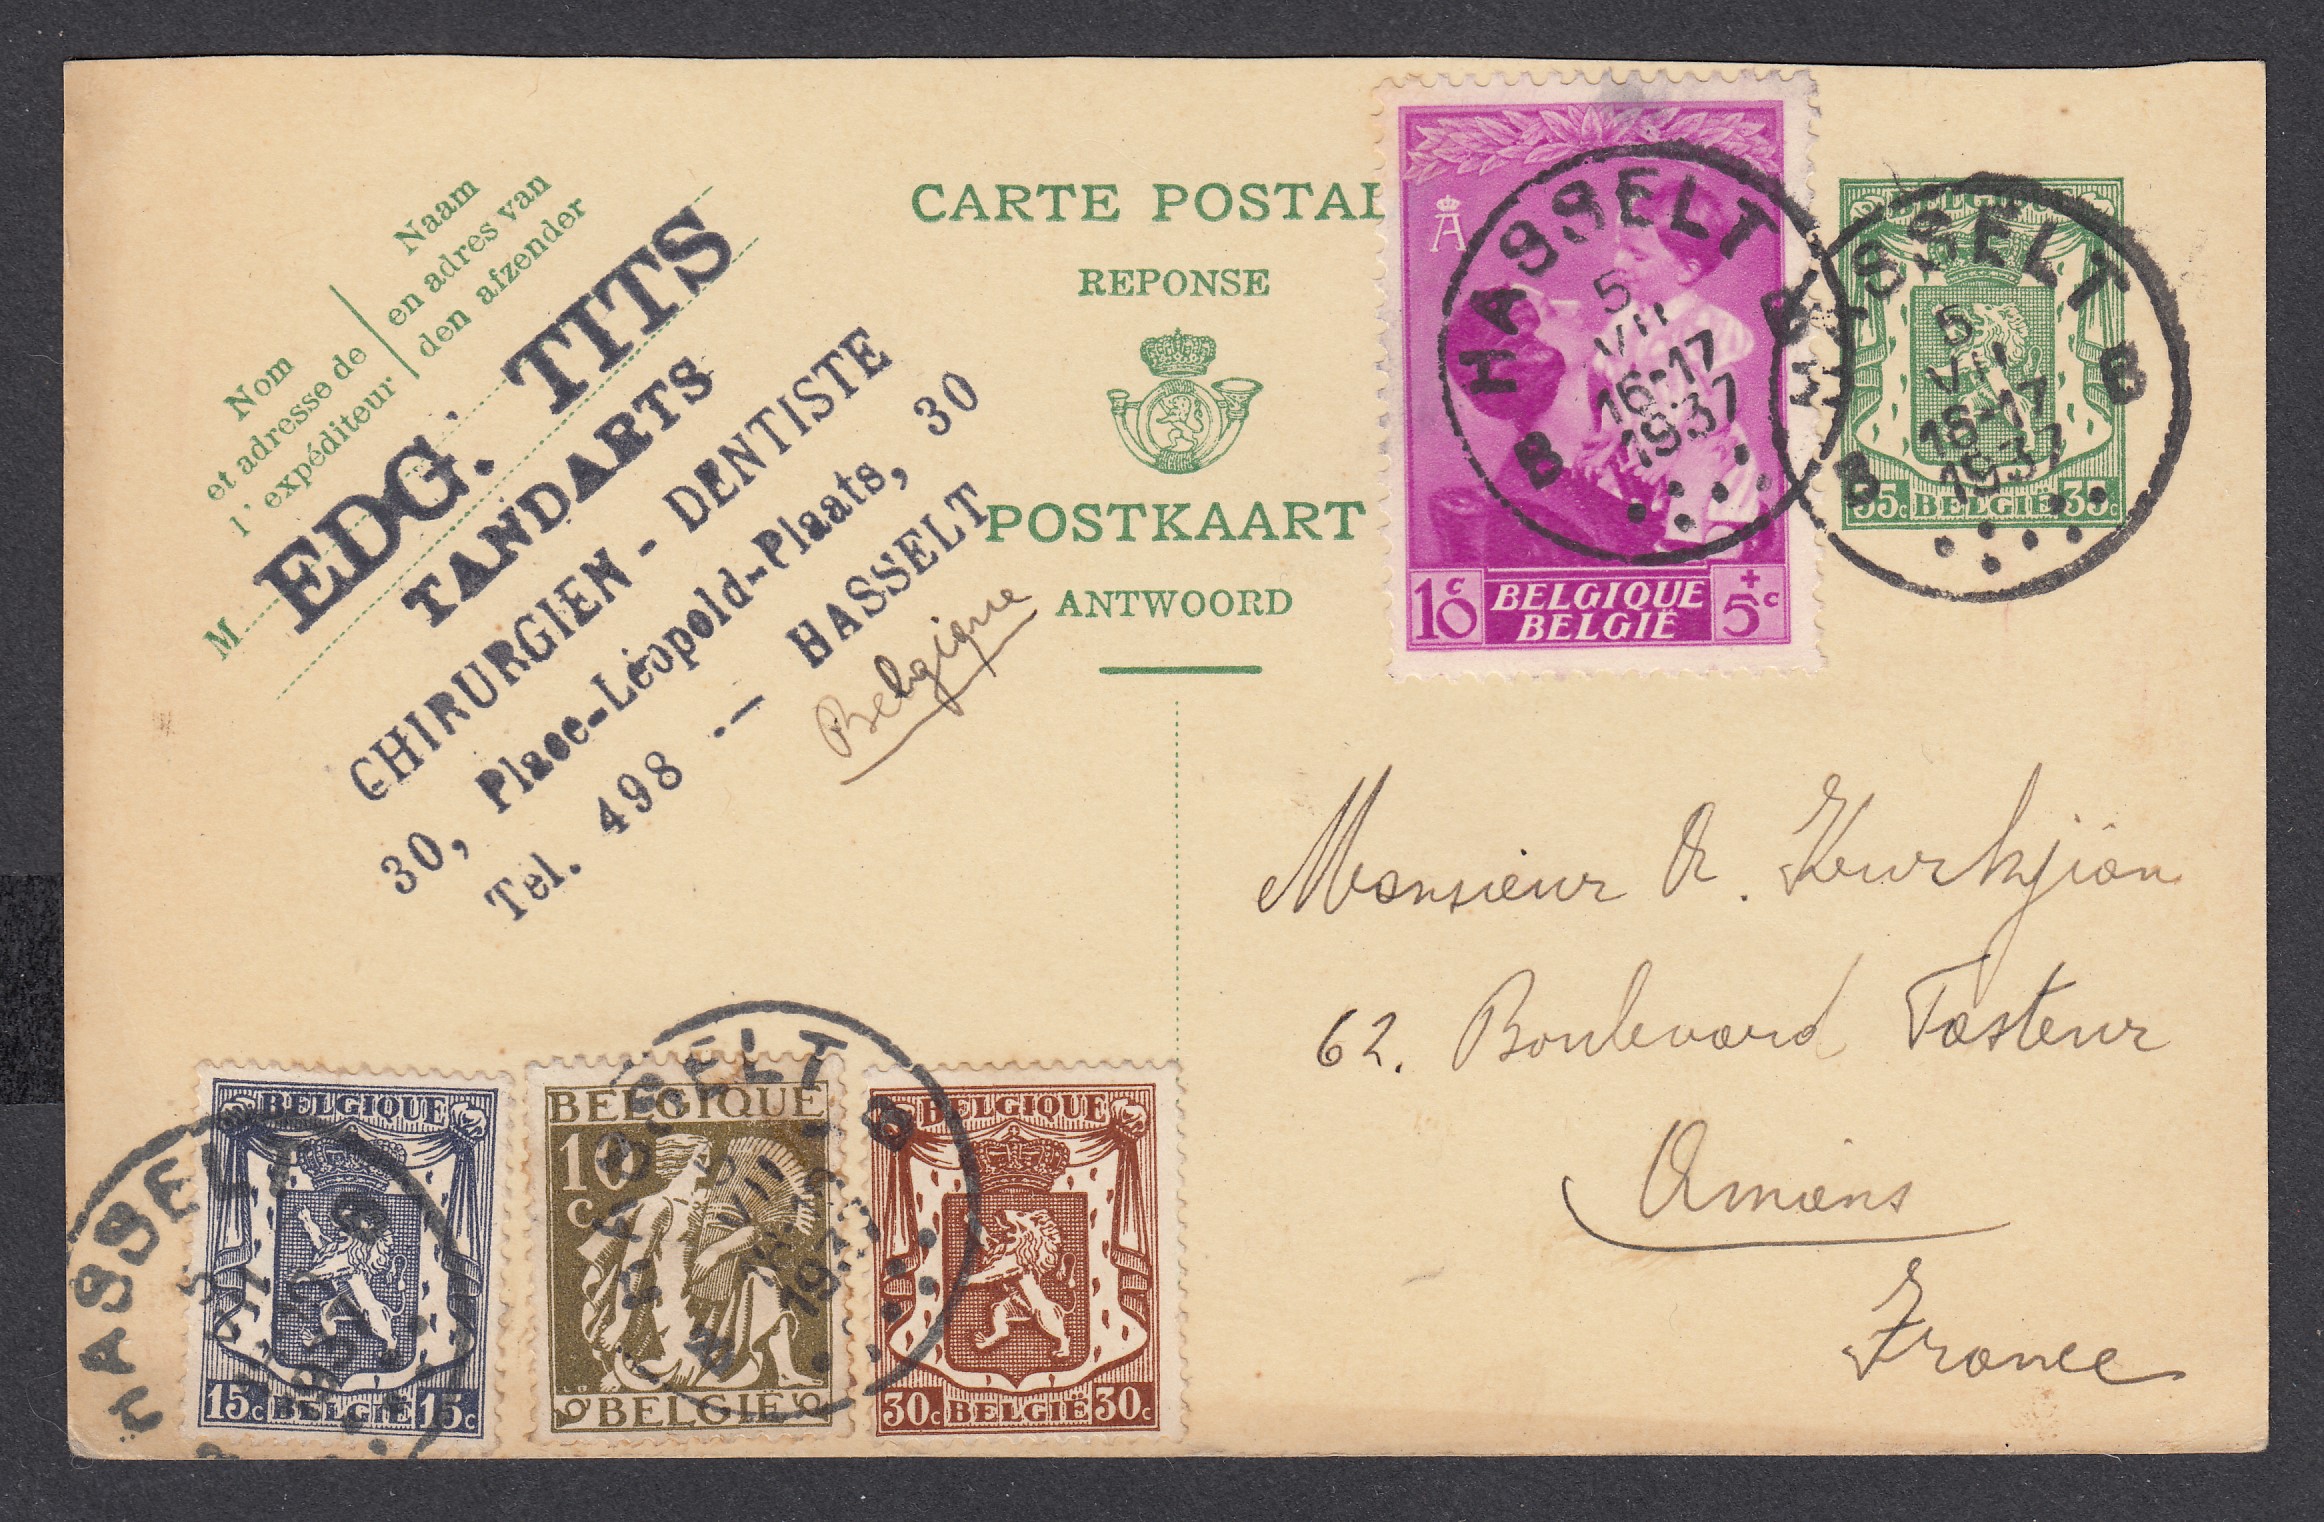 Nom
et adresse de
l'expéditeur
Naam
en adres van
den afzender
M
EDG. TITS
TANDARTS
CHIRURGIEN - DENTISTE
30, Place-Léopold-Plaats, 30
Tel. 498 -— HASSELT
Belgique
CARTE POSTAL
REPONSE
POSTKAART
ANTWOORD
A
10c BELGIQUE + 5c
BELGIË
HASSELT
5
VII
16-17
1937
B B
BELGIQUE
35c BELGIË 35c
HASSELT
5
VII
16-17
1937
B B
Monsieur A. Kurkjian
62. Boulevard Pasteur
Amiens
France
BELGIQUE
15c BELGIË 15c
HASSELT
BELGIQUE
10
c
BELGIË
HASSELT
BELGIQUE
30c BELGIË 30c